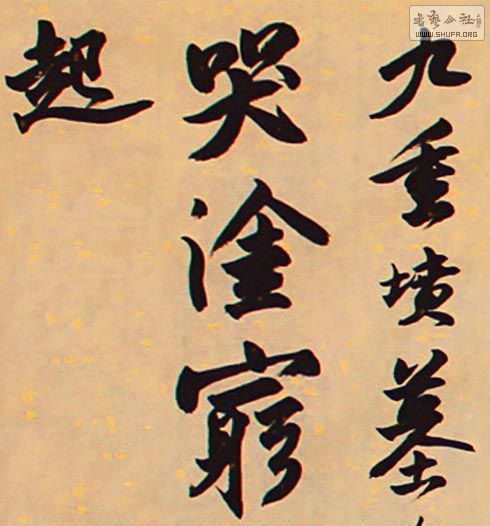 九重墳墓
哭塗窮
起
WWW.SHUFA.ORG